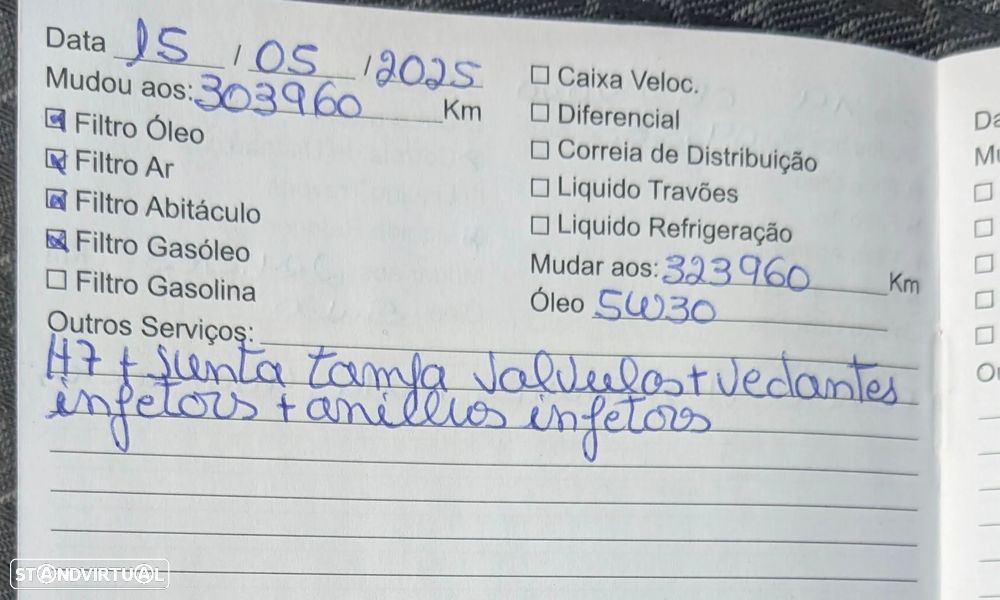 Data 15 / 05 / 2025
Mudou aos: 303960 Km
Filtro Óleo
Filtro Ar
Filtro Abitáculo
Filtro Gasóleo
Filtro Gasolina
Caixa Veloc.
Diferencial
Correia de Distribuição
Liquido Travões
Liquido Refrigeração
Mudar aos: 323960 Km
Óleo 5W30
Outros Serviços:
H7 + Junta tampa Valvulas + Vedantes
injetors + anilhas injetors
Da
Mu
Ou
STANDVIRTUAL